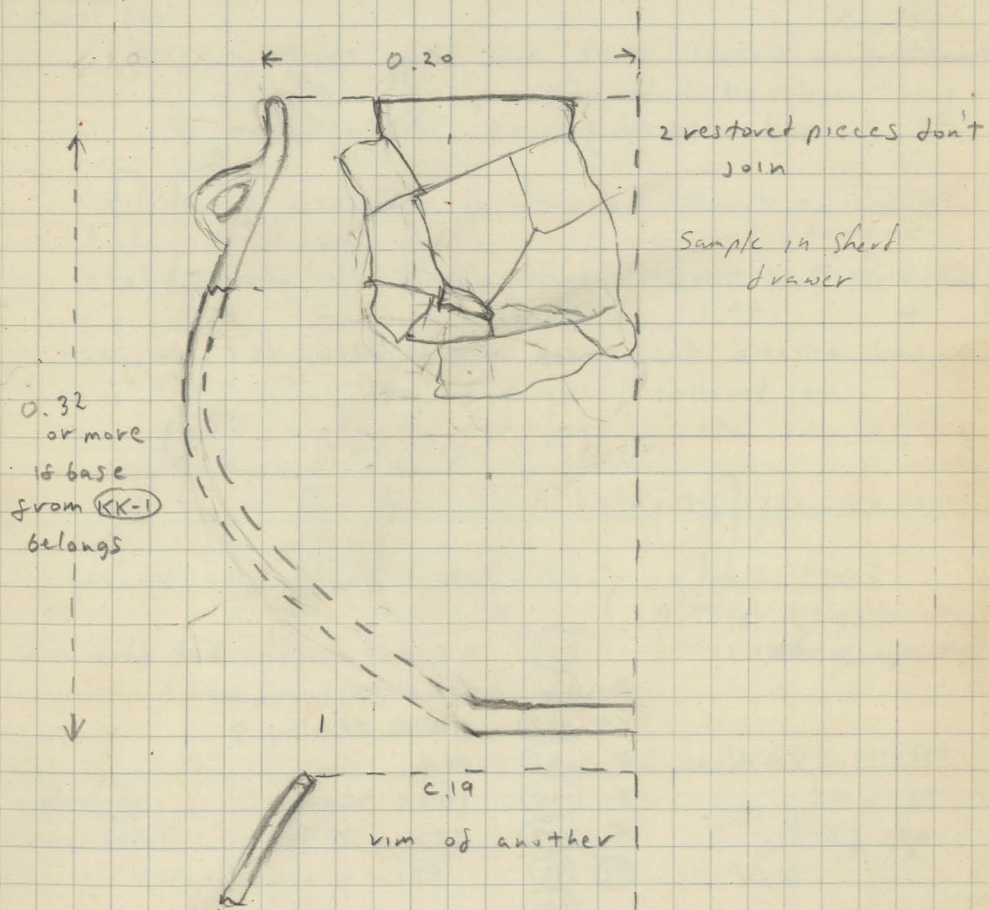 0.20
2 restored pieces don't
join
Sample in sherd
drawer
0.32
or more
if base
from KK-1
belongs
c.19
rim of another